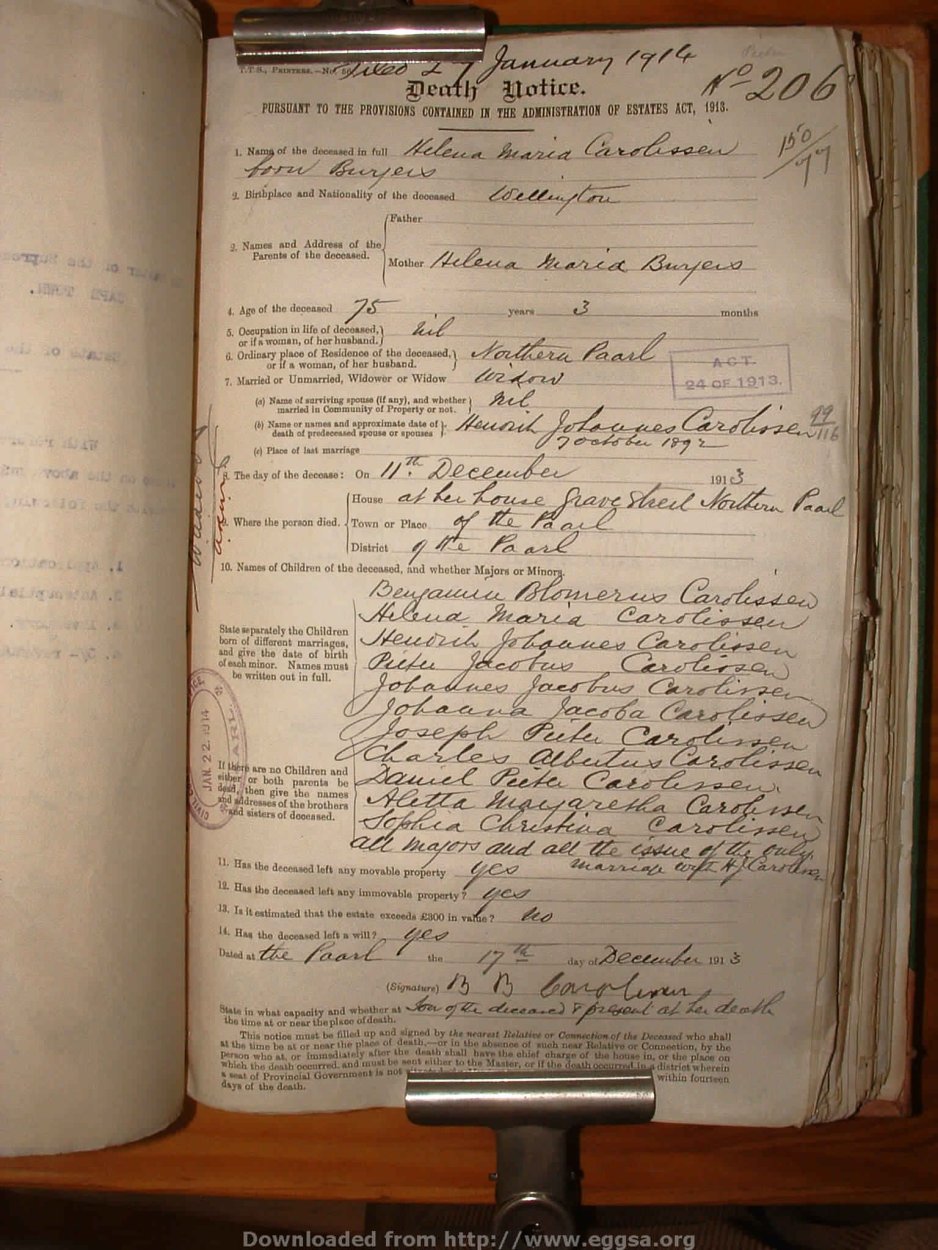 T.T.S., PRINTERS.—No.
Filed 27 January 1914
No 206
Death Notice.
PURSUANT TO THE PROVISIONS CONTAINED IN THE ADMINISTRATION OF ESTATES ACT, 1913.
1. Name of the deceased in full Helena Maria Carolissen
born Burgers
2. Birthplace and Nationality of the deceased Wellington
2. Names and Address of the Parents of the deceased.
Father
Mother Helena Maria Burgers
4. Age of the deceased 75 years 3 months
5. Occupation in life of deceased, or if a woman, of her husband. Nil
6. Ordinary place of Residence of the deceased, or if a woman, of her husband. Northern Paarl
ACT.
24 OF 1913.
7. Married or Unmarried, Widower or Widow Widow
(a) Name of surviving spouse (if any), and whether married in Community of Property or not. Nil
(b) Name or names and approximate date of death of predeceased spouse or spouses Hendrik Johannes Carolissen
7 October 1892
99/116
(c) Place of last marriage
8. The day of the decease: On 11th December 1913
9. Where the person died.
House at her house Grave Street Northern Paarl
Town or Place of the Paarl
District of the Paarl
10. Names of Children of the deceased, and whether Majors or Minors.
State separately the Children
born of different marriages,
and give the date of birth
of each minor. Names must
be written out in full.
Benjamin Blomerus Carolissen
Helena Maria Carolissen
Hendrik Johannes Carolissen
Pieter Jacobus Carolissen
Johannes Jacobus Carolissen
Johanna Jacoba Carolissen
Joseph Pieter Carolissen
Charles Albertus Carolissen
Daniel Pieter Carolissen
Aletta Margaretha Carolissen
Sophia Christina Carolissen
all majors and all the issue of the only
marriage with HJ Carolissen
JAN. 22. 1914
If there are no Children and
either or both parents be
dead, then give the names
and addresses of the brothers
and sisters of deceased.
11. Has the deceased left any movable property yes
12. Has the deceased left any immovable property? yes
13. Is it estimated that the estate exceeds £300 in value? no
14. Has the deceased left a will? yes
Dated at the Paarl the 17th day of December 1913
(Signature) B B Carolissen
State in what capacity and whether at Son of the deceased & present at her death
the time at or near the place of death.
This notice must be filled up and signed by the nearest Relative or Connection of the Deceased who shall
at the time be at or near the place of death,—or in the absence of such near Relative or Connection, by the
person who at, or immediately after the death shall have the chief charge of the house in, or the place on
which the death occurred, and must be sent either to the Master, or if the death occurred in a district wherein
a seat of Provincial Government is not within fourteen
days of the death.
Downloaded from http://www.eggsa.org